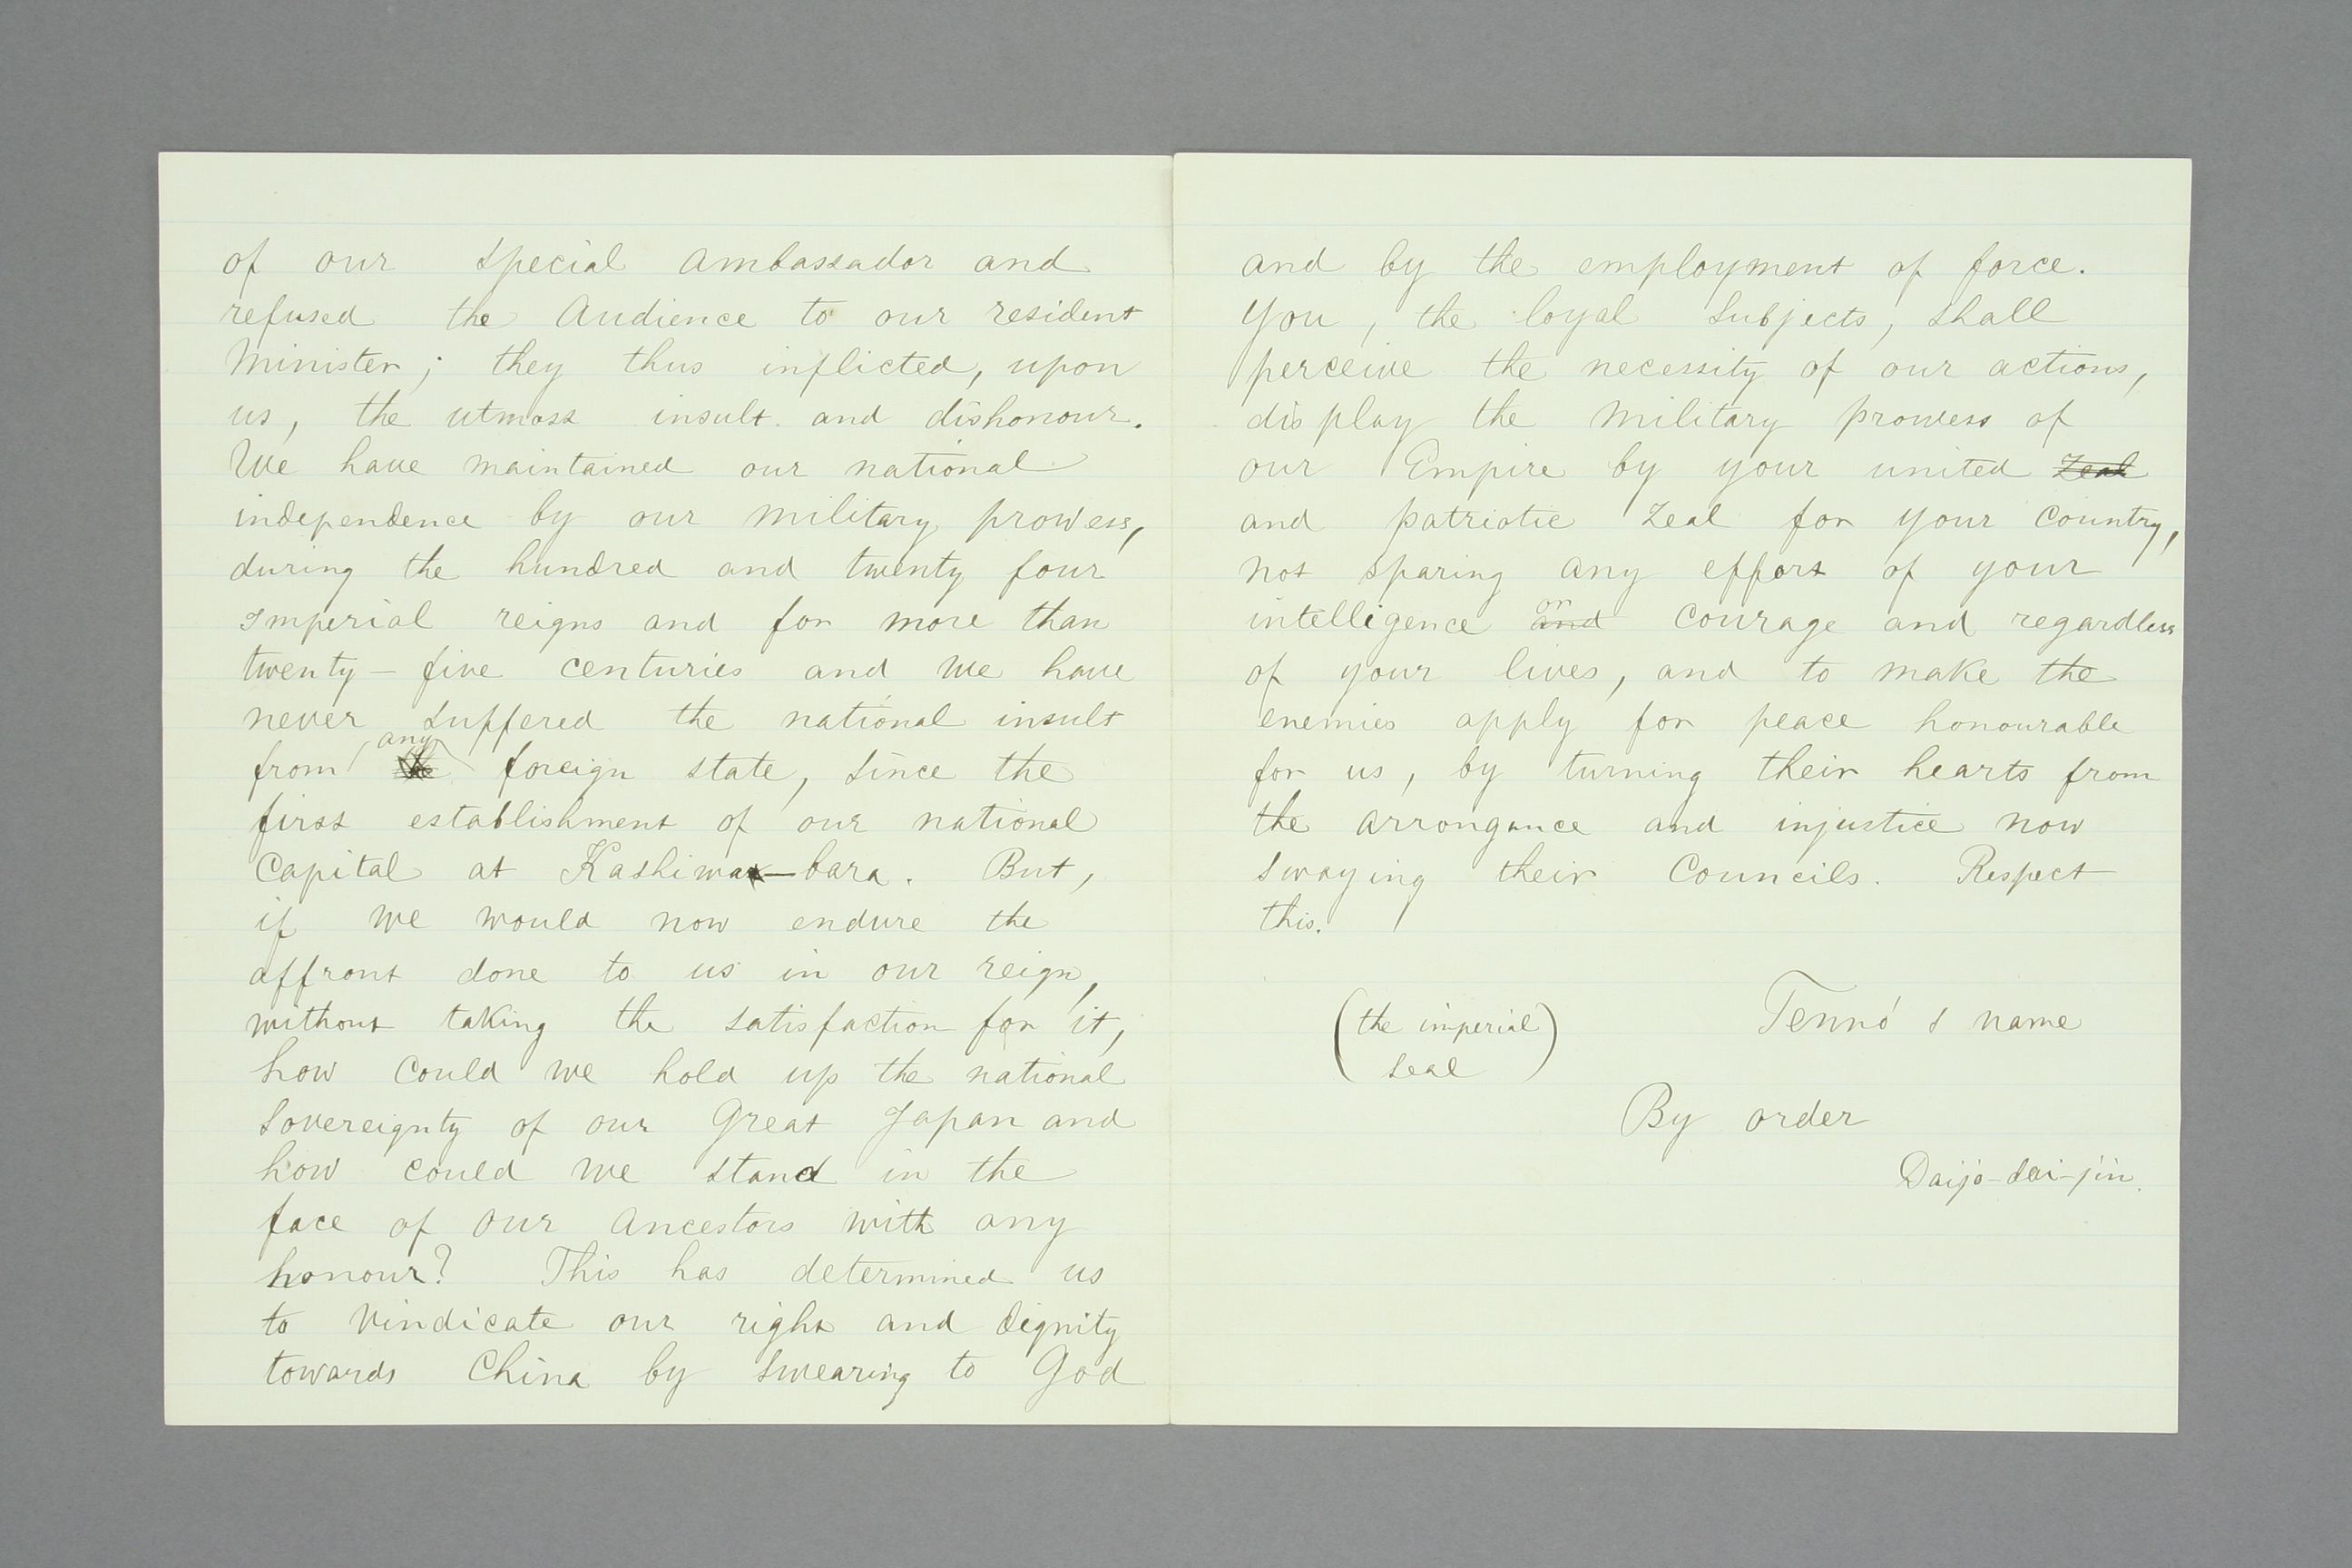 of our special ambassador and
refused the Audience to our resident
Minister; they thus inflicted, upon
us, the utmost insult and dishonour.
We have maintained our national
independence by our military prowess,
during the hundred and twenty four
Imperial reigns and for more than
twenty-five centuries and we have
never suffered the national insult
any
from the foreign state, since the
first establishment of our national
Capital at Kashiwa-bara. But,
if we would now endure the
affront done to us in our reign,
without taking the satisfaction for it,
how could we hold up the national
Sovereignty of our Great Japan and
how could we stand in the
face of our Ancestors with any
honour? This has determined us
to vindicate our right and dignity
towards China by swearing to God
and by the employment of force.
You, the loyal Subjects, shall
perceive the necessity of our actions,
display the military prowess of
our Empire by your united zeal
and patriotic zeal for your country,
not sparing any effort of your
or
intelligence and courage and regardless
of your lives, and to make the
enemies apply for peace honourable
for us, by turning their hearts from
the arrongance and injustice now
swaying their Councils. Respect
this.
(the imperial seal)
Tennó's name
By order
Daijo-dai-jin.